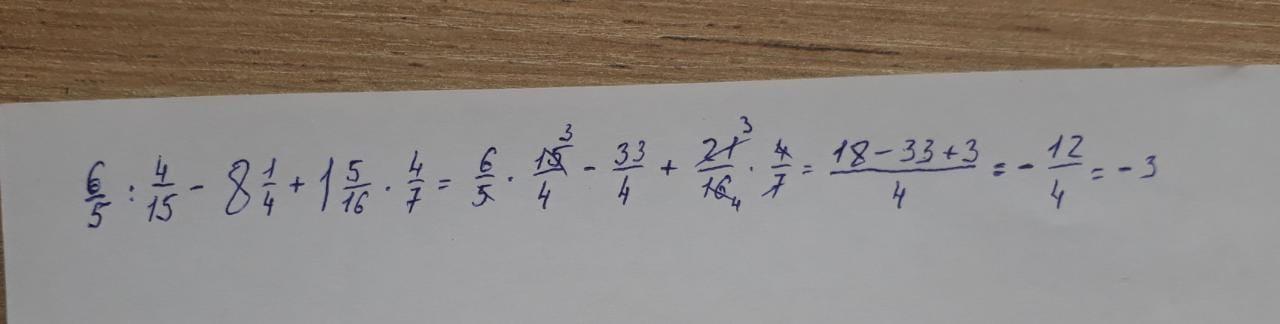 6/5 : 4/15 - 8 1/4 + 1 5/16 · 4/7 = 6/5 · 15/4 3 - 33/4 + 21/16 3 4 · 4/7 = 18-33+3/4 = - 12/4 = - 3